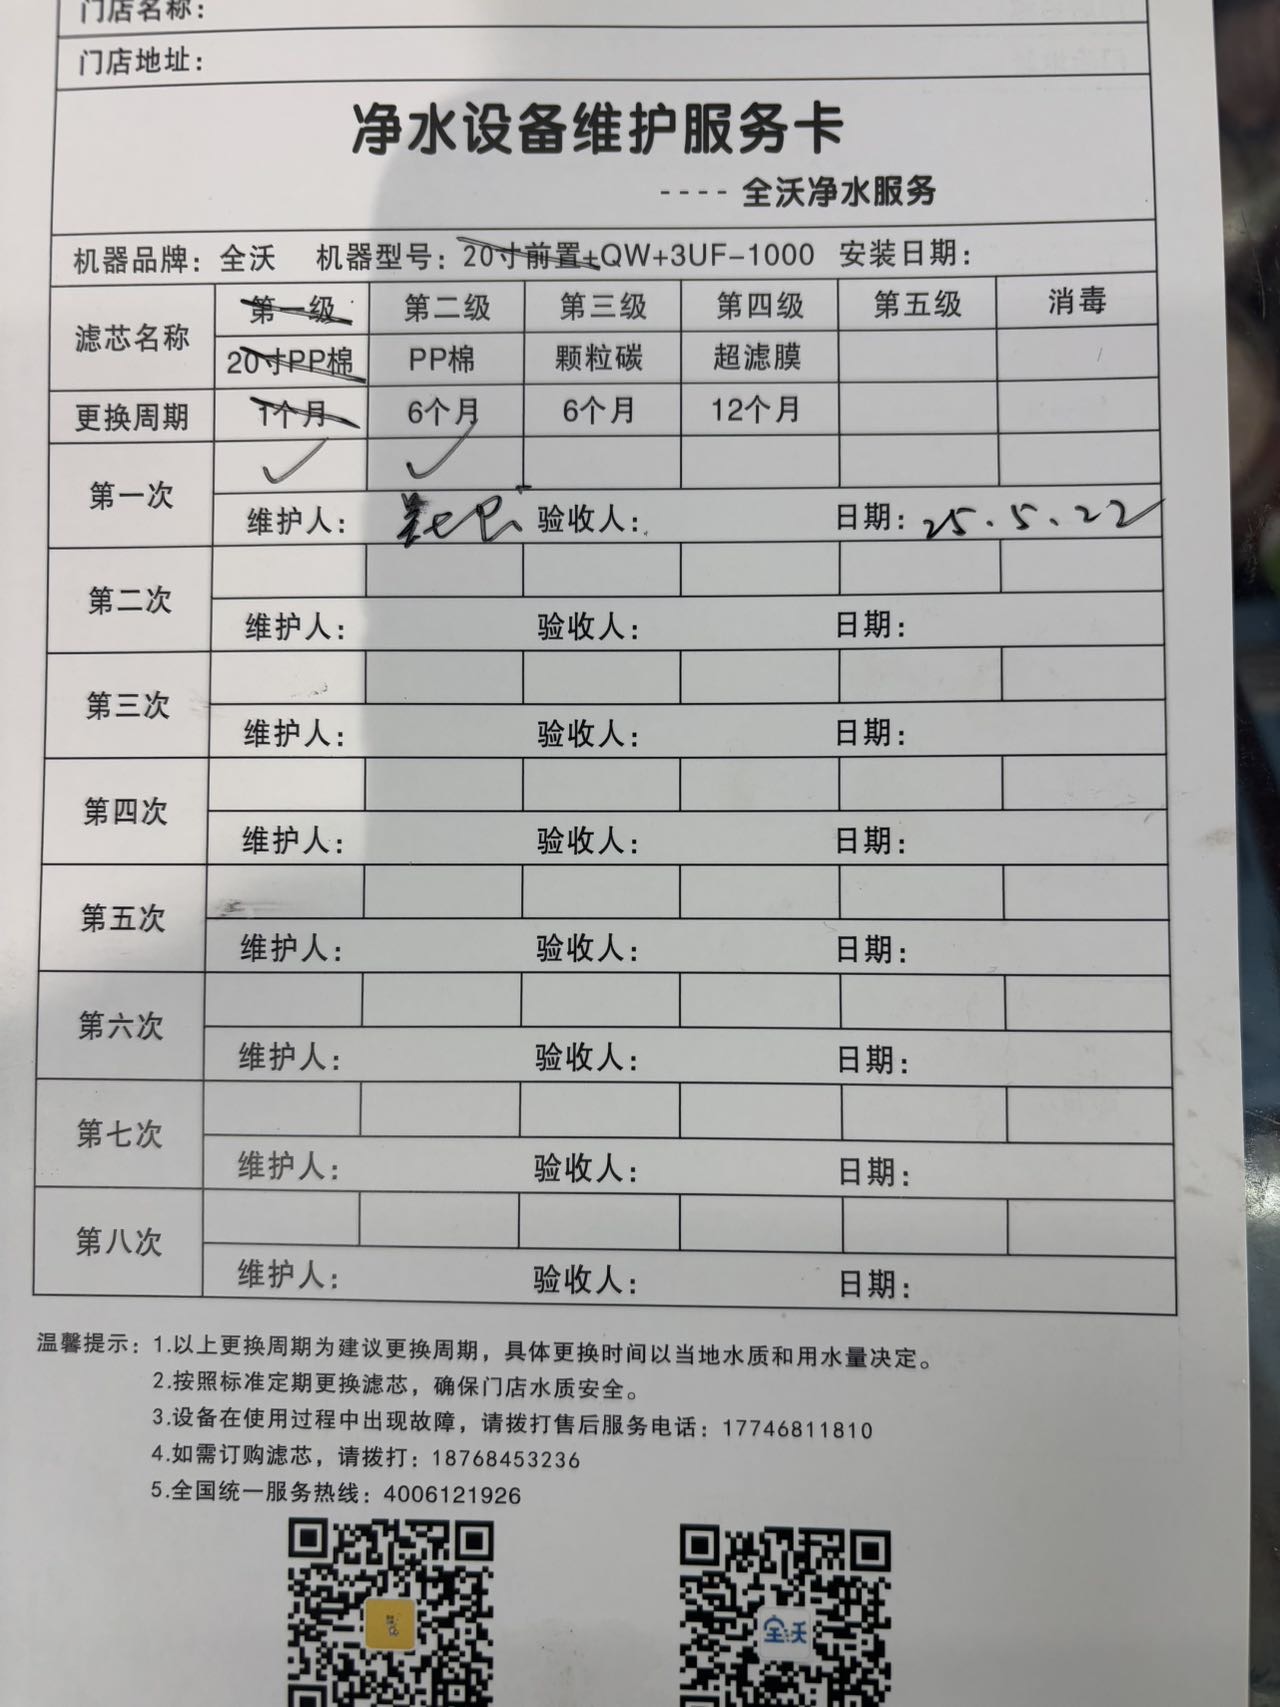 门店名称：
门店地址：
净水设备维护服务卡
---- 全沃净水服务
机器品牌：全沃 机器型号：20寸前置+QW+3UF-1000 安装日期：
滤芯名称 第一级 第二级 第三级 第四级 第五级 消毒
20寸PP棉 PP棉 颗粒碳 超滤膜
更换周期 1个月 6个月 6个月 12个月
第一次 ✓ ✓
维护人： 验收人： 日期：25.5.22
第二次
维护人： 验收人： 日期：
第三次
维护人： 验收人： 日期：
第四次
维护人： 验收人： 日期：
第五次
维护人： 验收人： 日期：
第六次
维护人： 验收人： 日期：
第七次
维护人： 验收人： 日期：
第八次
维护人： 验收人： 日期：
温馨提示：1.以上更换周期为建议更换周期，具体更换时间以当地水质和用水量决定。
2.按照标准定期更换滤芯，确保门店水质安全。
3.设备在使用过程中出现故障，请拨打售后服务电话：17746811810
4.如需订购滤芯，请拨打：18768453236
5.全国统一服务热线：4006121926
全沃